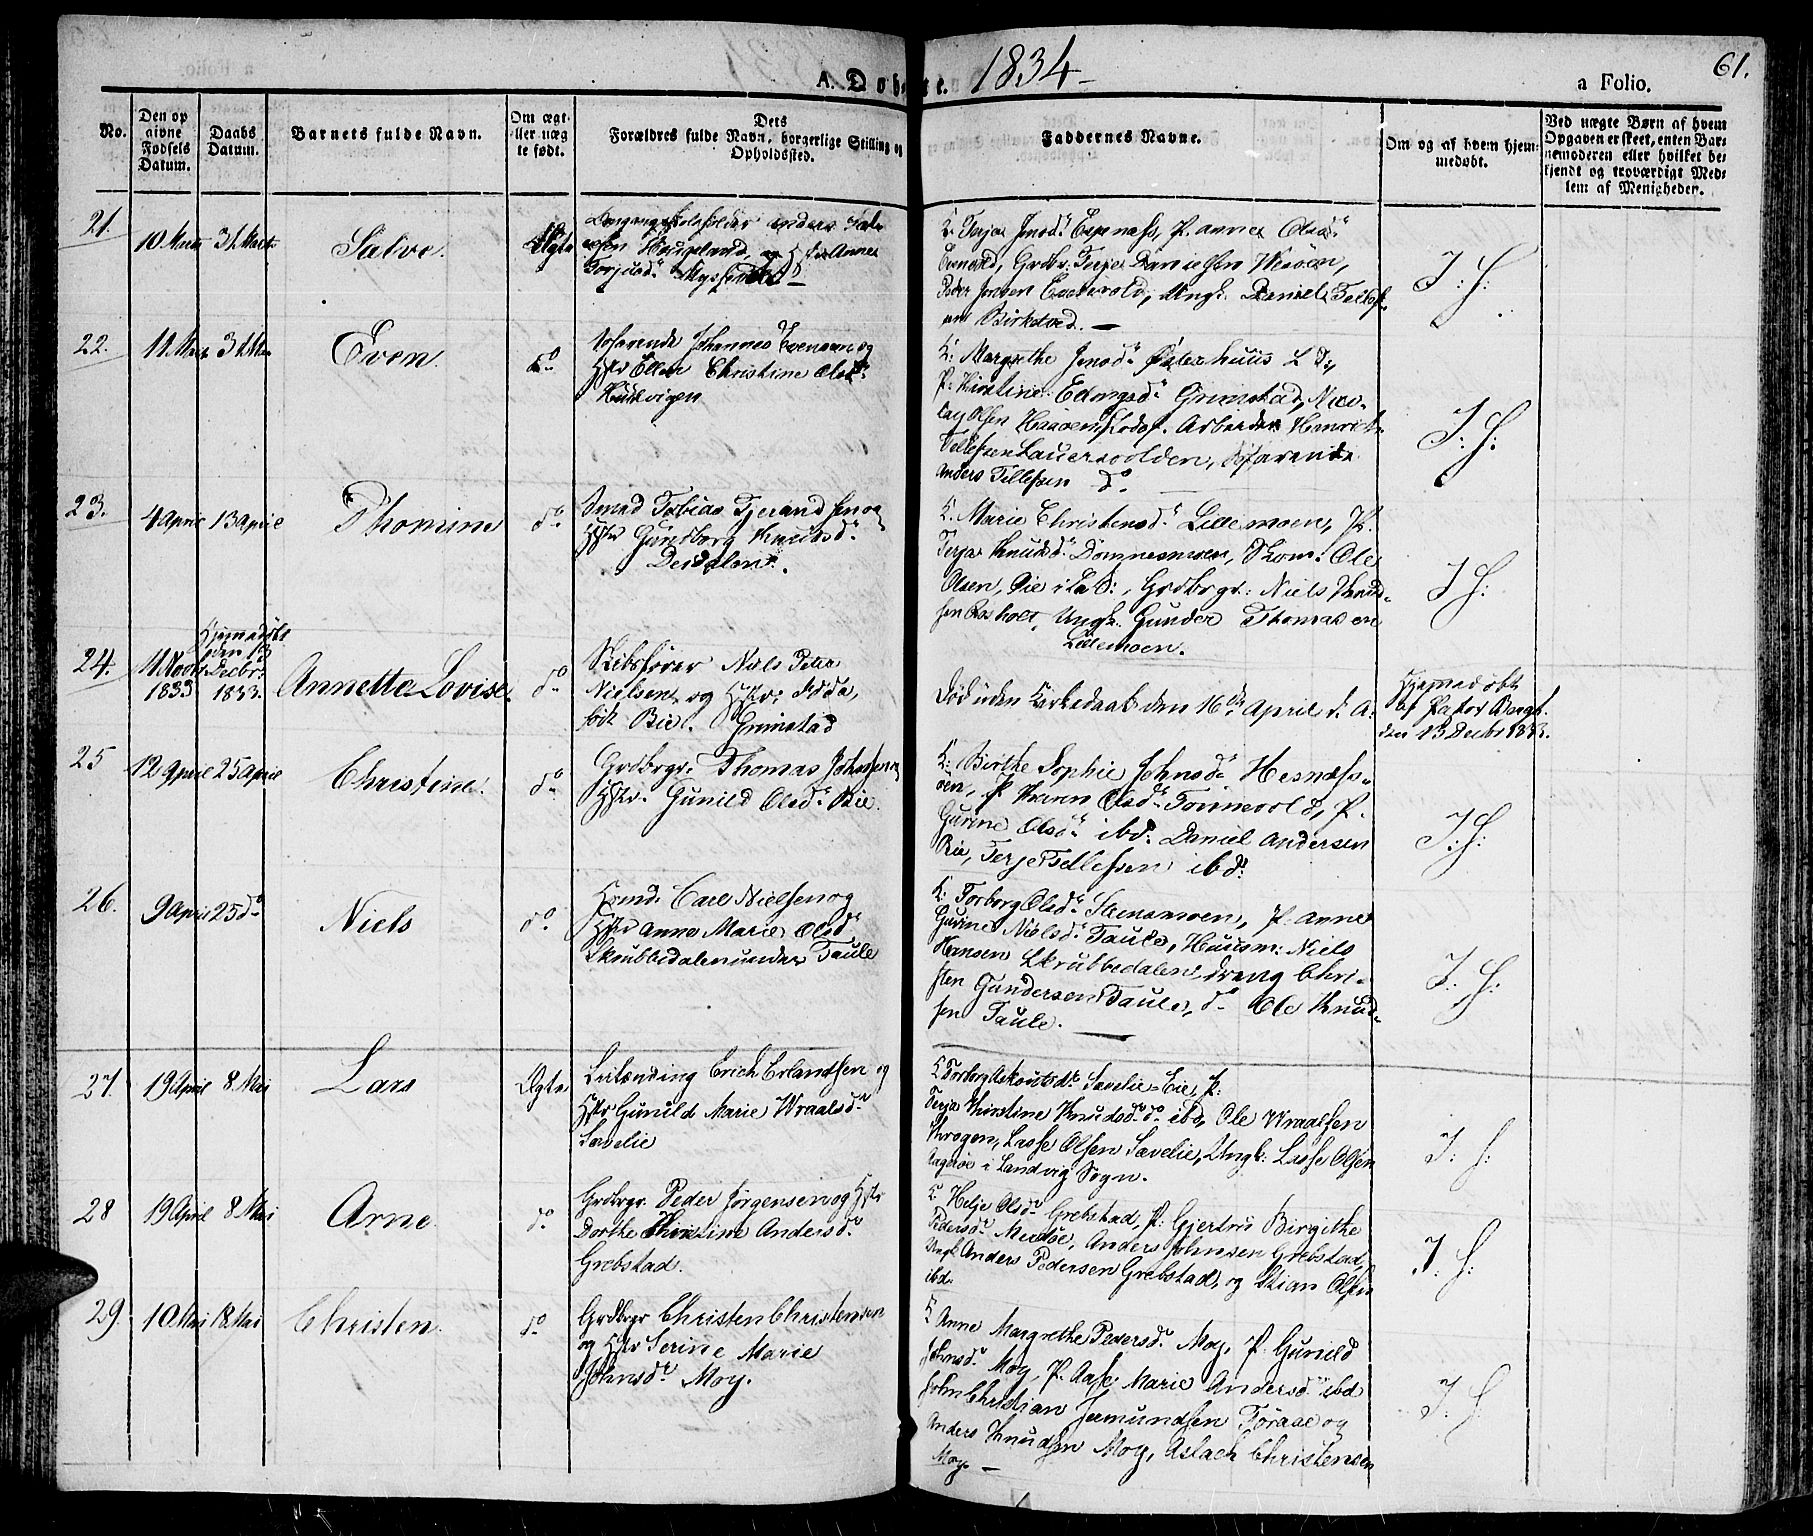 A. Døbte. 1834 61.
a Folio.
No.
Den op
givne
Fødsels
Datum.
Daabs
Datum.
Barnets fulde Navn.
Om ægt-
eller næg
te født.
Dets
Forældres fulde Navn, borgerlige Stilling og
Opholdssted.
Faddernes Navne.
Om og af hvem hjem-
medøbt.
Ved nægte Børn af hvem
Opgaven er skeet, enten Bar-
nemoderen eller hvilket be-
kjendt og troværdigt Med-
lem af Menigheden.
21.
10 Marts 31 Marts
Salve.
Ægte
Omgangsskoleholder Anders Sal-
vesen Hougeland, og Hstr Anne
Torjusdr
K. Terjer Jensdr Espenæss, P. Anne Olsdr
Grdbr. Terje Danielsen
Peder Jensen Ungk. Daniel Tellefs-
en Birketved. —
I: H:
22.
11 Marts 31 Mar
Even
do
Søfarende Johannes Evensen og
Hstr Ellen Christine Olsdr
K: Margrethe Jensdr Østerhuus
P: Kirstine Grimstad, Nico-
lay Olsen Arbeider Henrik
Tellefsen Søfarende
Anders Tellefsen do
I: H:
23.
4 April 13 April
Thomine
do
Smed Tobias Tjerandsen og
Hstr Gunborg Knudsdr
Dei
K. Marie Christensdr Lillemoen, P.
Terjer Knudsdr Dømnesmoen, Ole
Olsen, Bie Grdbrgr: Niels Knud-
sen Ungk. Gunder Thomasen
Lillemoen.
I H:
24.
11 Novbr
1833
Hjemmedøbt
den 13
Decbr
1833.
Annette Lovise.
do
Skibsfører Niels Peter
Nielsen og Hstr:
født Bie. Grimstad
Død uden Kirkedaab den 16de April d. A.
Hjemmedøbt
af Pastor
den 13 Decbr 1833.
25
12 April 25 April
Christine.
do
Grdbrgr. Thomas Johnsen og
Hstr. Gunild Olsdr Bie.
K: Birthe Sophie Johnsdr Hesnæss-
øen, P Karen Olsdr P.
Gurine Olsdr ibd: Daniel Andersen
Bie, Terje Tellefsen ibd:
I: H:
26.
9 April 25 do
Niels
do
Carl Nielsen og
Hstr Anne Marie Olsd
Skrubbedalen under Taule
K: Torborg Olsdr Steensmoen, P. Anne
Gurine Nielsdr Taule, Huusm: Niels
Hansen Skrubbedalen, dreng Chri-
sten Gundersen Taule, do Ole Knud-
sen Taule. —
I: H:
27.
19 April 8. Mai
Lars
Ægte
Leilænding Erich Erlandsen og
Hstr Gunild Marie Wraalsdr
Savelie
K Torborg Savelie=Eie, P:
Kirstine Knudsdr ibd, Ole Wraalsen
Krogen, Lasse Olsen Savelie, Ungk: Lasse Olsen
i Landvig Sogn.
I: H:
28
19 April 8 Mai
Arne
do
Grdbrgr. Peder Jørgensen og Hstr
Dorthe Kirstine Andersdr
Grebstad.
K Helje Olsdr Grebstad, P: Gjertru Birgithe
Pedersdr Anders Johnsen Grebstad,
Ungk Anders Pedersen Grebstad, og Stian Olsen
ibd:
I. H:
29.
10 Mai 18. Mai
Christen
do
Grdbrgr Christen Christensen
og Hstr Serine Marie
Johnsdr Moy.
K Anne Margrethe Pedersdr Moy, P: Gunild
Johnsdr Moy, P. Aase Marie Andersdr ibd
John Christian Jermundsen Foraae og
Anders Knudsen Moy, Aslach Christensen
Moy. —
I. H: